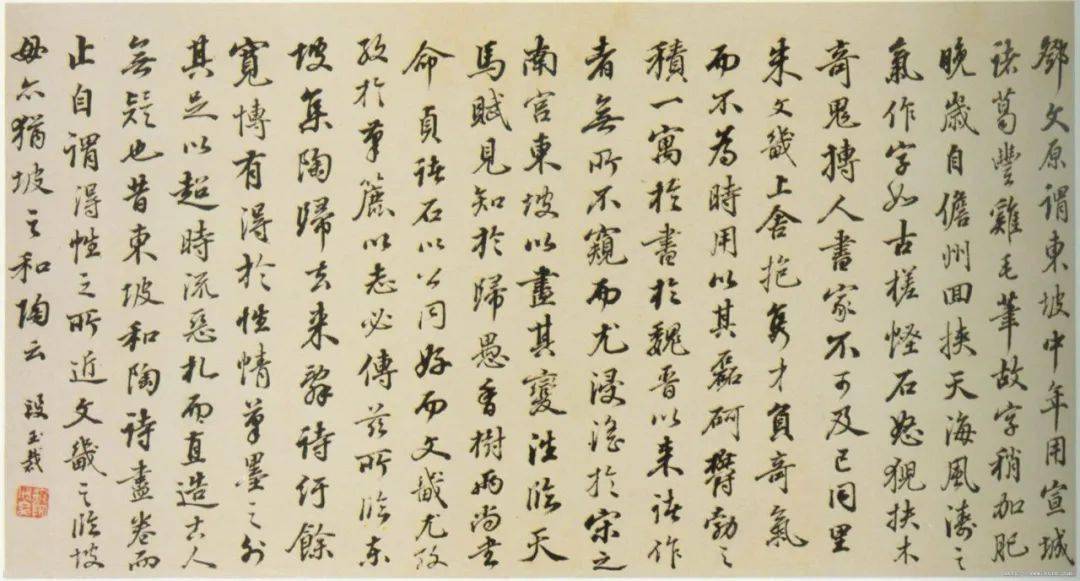 鄧文原謂東坡中年用宣城
諸葛豐雞毛筆故字稍加肥
晚歲自儋州回挾天海風濤之
氣作字如古槎怪石怒猊抉木
奇鬼搏人書家不可及已同里
朱文畿上舍抱雋才負奇氣
而不為時用以其磊砢鬱勃之
積一寓於書於魏晉以來諸作
者無所不窺而尤浸淫於宋之
南宮東坡以盡其變往臨天
馬賦見知於歸愚香樹兩尚書
命貞諸石以公同好而文畿尤孜
孜於以志必傳茲所臨東
坡集陶歸去來辭詩紆餘
寬博有得於性情筆墨之外
其足以超時流惡札而直造古人
無疑也昔東坡和陶詩盡卷而
止自謂得性之所近文畿之臨坡
毋亦猶坡之和陶云 段玉裁